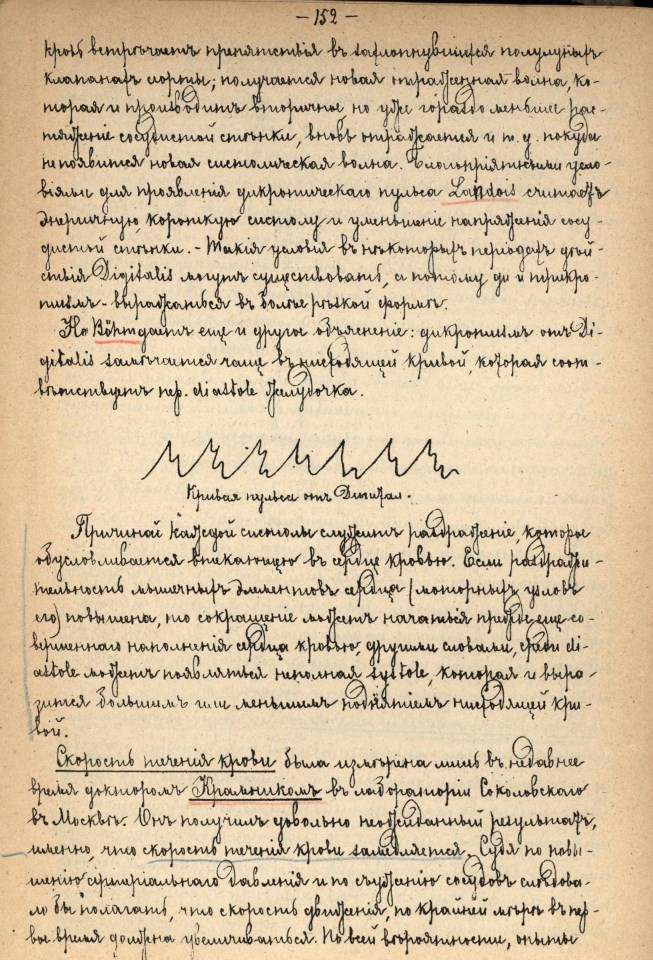 — 152 —
кровь встрѣчаетъ препятствія въ захлопнувшихся полулунныхъ
клапанахъ аорты; получается новая отраженная волна, ко-
торая и производитъ вторичное но уже гораздо меньшее рас-
тяженіе сосудистой стѣнки, вновь отражается и т. д. покуда
не появится новая систолическая волна. Благопріятными усло-
віями для проявленія дикротическаго пульса Landois считаетъ
энергичную, короткую систолу и уменьшеніе напряженія сосу-
дистой стѣнки. - Такія условія въ нѣкоторыхъ періодахъ дѣй-
ствія Digitalis могутъ существовать, а потому ди и трикро-
тизмъ - выражаться въ болѣе рѣзкой формѣ.
Но Böhm даетъ еще и другое объясненіе: дикротизмъ отъ Di-
gitalis замѣчается чаще въ нисходящей кривой, которая соот-
вѣтствуетъ пер. diastole желудочка.
Кривая пульса отъ Дигитал.
Причиной каждой систолы служитъ раздраженіе, которое
обусловливается втекающею въ сердце кровью. Если раздражи-
тельность мышечныхъ элементовъ сердца (моторныхъ узловъ
его) повышена, то сокращеніе можетъ начаться прежде еще со-
вершеннаго наполненія сердца кровью, другими словами, среди di-
astole можетъ появляться неполная systole, которая и выра-
зится большимъ или меньшимъ поднятіемъ нисходящей кри-
вой.
Скорость теченія крови была измѣрена лишь въ недавнее
время докторомъ Крамникомъ въ лабораторіи Соколовскаго
въ Москвѣ. Онъ получилъ довольно неожиданный результатъ,
именно, что скорость теченія крови замедляется. Судя по повы-
шенію артеріальнаго давленія и по съуженію сосудовъ слѣдова-
ло бы полагать, что скорость движенія, по крайней мѣрѣ въ пер-
вое время должна увеличиваться. По всей вѣроятности, опыты